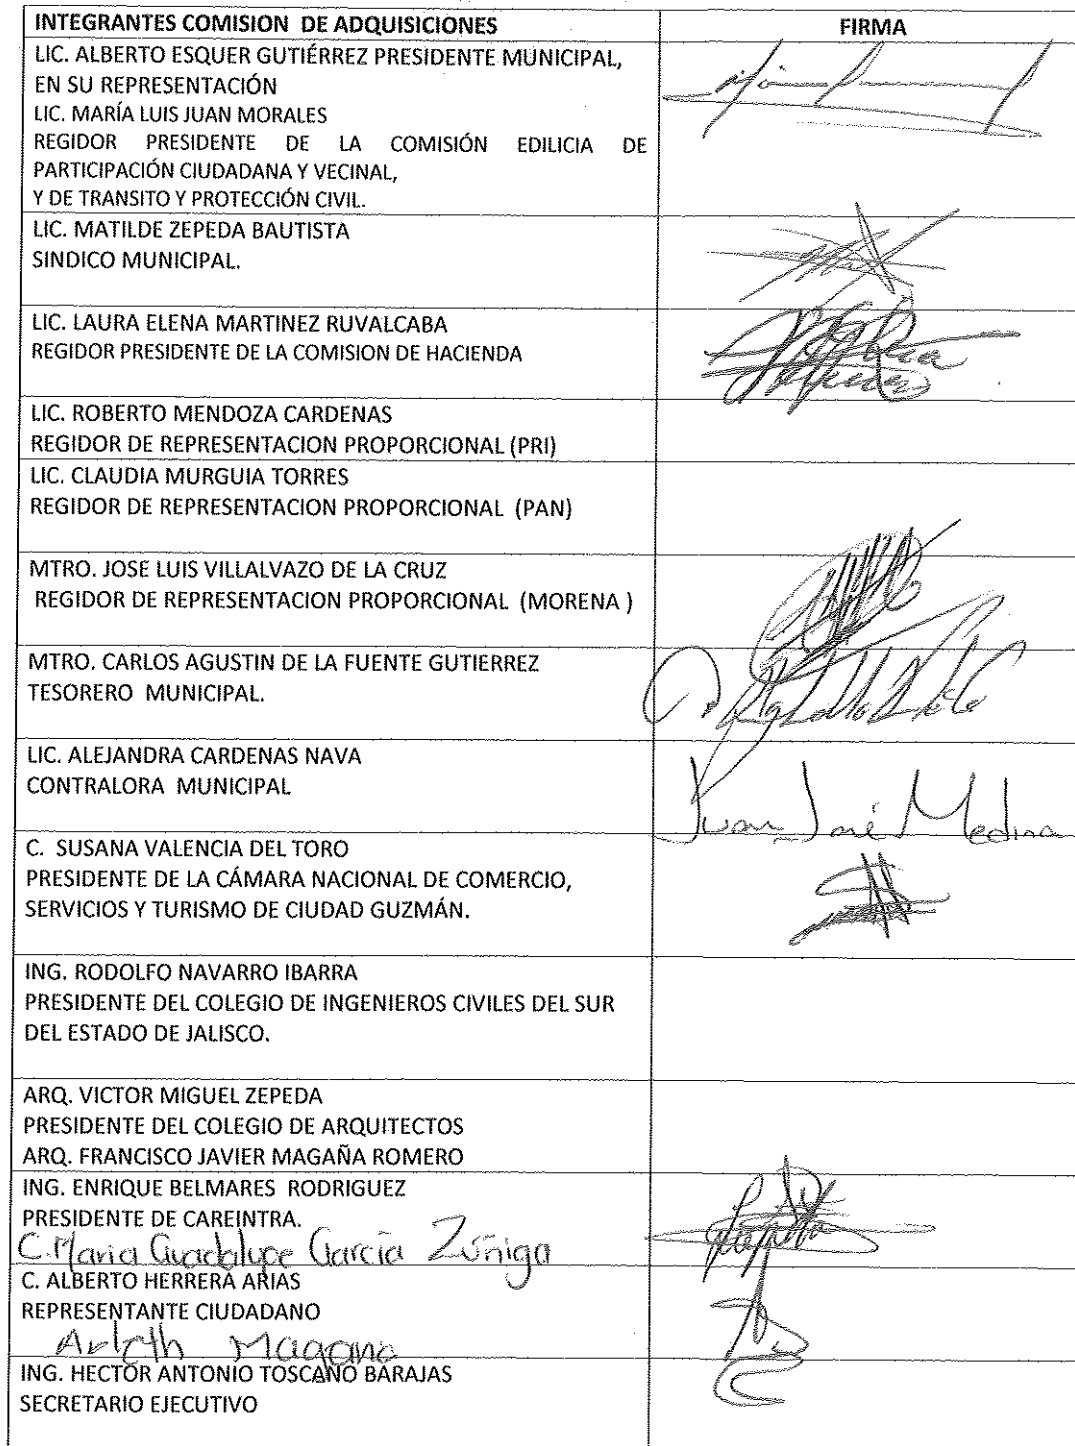 INTEGRANTES COMISION DE ADQUISICIONES
FIRMA
LIC. ALBERTO ESQUER GUTIÉRREZ PRESIDENTE MUNICIPAL,
EN SU REPRESENTACIÓN
LIC. MARÍA LUIS JUAN MORALES
REGIDOR PRESIDENTE DE LA COMISIÓN EDILICIA DE
PARTICIPACIÓN CIUDADANA Y VECINAL,
Y DE TRANSITO Y PROTECCIÓN CIVIL.
LIC. MATILDE ZEPEDA BAUTISTA
SINDICO MUNICIPAL.
LIC. LAURA ELENA MARTINEZ RUVALCABA
REGIDOR PRESIDENTE DE LA COMISION DE HACIENDA
LIC. ROBERTO MENDOZA CARDENAS
REGIDOR DE REPRESENTACION PROPORCIONAL (PRI)
LIC. CLAUDIA MURGUIA TORRES
REGIDOR DE REPRESENTACION PROPORCIONAL (PAN)
MTRO. JOSE LUIS VILLALVAZO DE LA CRUZ
REGIDOR DE REPRESENTACION PROPORCIONAL (MORENA )
MTRO. CARLOS AGUSTIN DE LA FUENTE GUTIERREZ
TESORERO MUNICIPAL.
LIC. ALEJANDRA CARDENAS NAVA
CONTRALORA MUNICIPAL
Juan José Medina
C. SUSANA VALENCIA DEL TORO
PRESIDENTE DE LA CÁMARA NACIONAL DE COMERCIO,
SERVICIOS Y TURISMO DE CIUDAD GUZMÁN.
ING. RODOLFO NAVARRO IBARRA
PRESIDENTE DEL COLEGIO DE INGENIEROS CIVILES DEL SUR
DEL ESTADO DE JALISCO.
ARQ. VICTOR MIGUEL ZEPEDA
PRESIDENTE DEL COLEGIO DE ARQUITECTOS
ARQ. FRANCISCO JAVIER MAGAÑA ROMERO
ING. ENRIQUE BELMARES RODRIGUEZ
PRESIDENTE DE CAREINTRA.
C. Maria Guadalupe García Zúñiga
C. ALBERTO HERRERA ARIAS
REPRESENTANTE CIUDADANO
Arleth Magana
ING. HECTOR ANTONIO TOSCANO BARAJAS
SECRETARIO EJECUTIVO